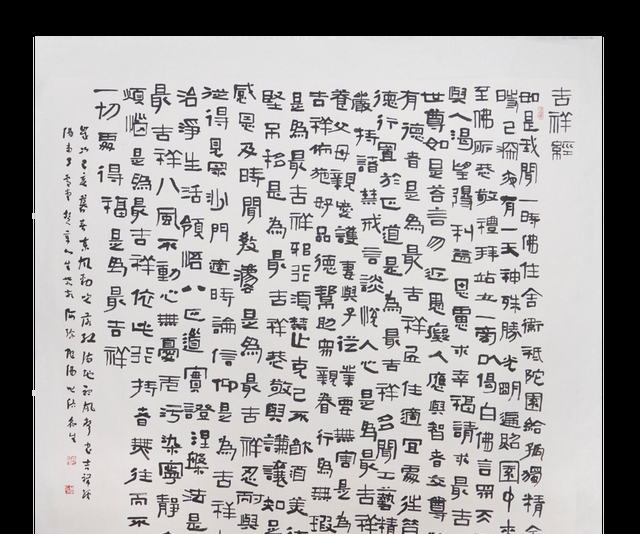 吉祥經
如是我聞一時佛住舍衛祇陀園給孤獨精舍
時已深夜有一天神殊勝光明遍照園中來
至佛所恭敬禮拜站立一旁以偈白佛言眾天
與人渴望得利益思慮求幸福請求最吉
世尊如是答言勿近愚癡人應與智者交尊
有德者是為最吉祥居住適宜處往昔
德行置於正道是為最吉祥多聞工藝精
嚴持諸禁戒言談悅人心是為最吉祥
養父母親愛護妻與子從業要無害是為
吉祥佈施好品德幫助眾親眷行為無瑕
是為最吉祥邪行須禁止克己不飲酒美德
堅不移是為最吉祥恭敬與謙讓知足
感恩及時聞教法是為最吉祥忍耐與
從得見眾沙門適時論信仰是為最吉祥
治淨生活領悟八正道實證涅槃法是
最吉祥八風不動心無憂無污染寧靜
煩惱是為最吉祥依此行持者無往而不
一切處得福是為最吉祥